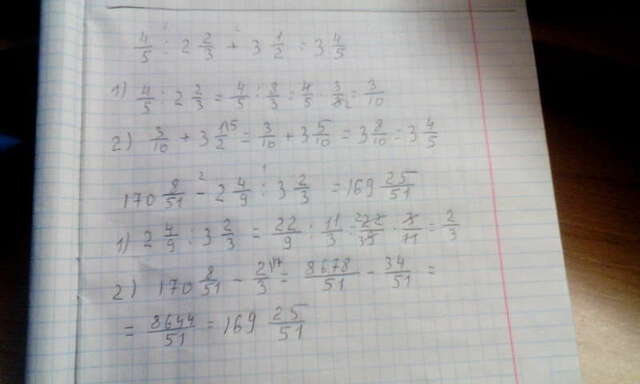 4/5 : 2 2/3 + 3 1/2 = 3 4/5
1) 4/5 : 2 2/3 = 4/5 : 8/3 = 4/5 · 3/8 2 = 3/10
2) 3/10 + 3 1/2 \5 = 3/10 + 3 5/10 = 3 8/10 = 3 4/5
170 8/51 - 2 4/9 : 3 2/3 = 169 25/51
1) 2 4/9 : 3 2/3 = 22/9 : 11/3 = 22/9 · 3/11 = 2/3
2) 170 8/51 - 2/3 \17 = 8678/51 - 34/51 =
= 8644/51 = 169 25/51